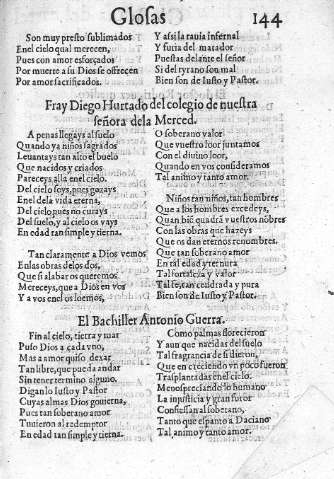 Glosas
144
Son muy presto sublimados
En el cielo qual merecen,
Pues con amor esforçados
Por muerte a su Dios se ofrecen
Por amor sacrificados.
Y assi la rauia infernal
Y furia del matador
Puestas delante el señor
Si del tyrano son mal
Bien son de Iusto y Pastor.
Fray Diego Hurtado del colegio de nuestra
señora dela Merced.
A penas llegays al suelo
Quando ya niños sagrados
Leuantays tan alto el buelo
Que nacidos y criados
Pareceys alla en el cielo.
Del cielo soys, pues gozays
En el dela vida eterna,
Del cielo pues no curays
Del suelo, y al cielo os vays
En edad tan simple y tierna.
Tan claramente a Dios vemos
En las obras de los dos,
Que si alabaros queremos
Mereceys, que a Dios en vos
Y a vos en el os loemos,
O soberano valor
Que vuestro loor juntamos
Con el diuino loor,
Quando en vos consideramos
Tal animo y tanto amor.
Niños tan niños, tan hombres
Que a los hombres excedeys,
Quan biē quadrā vuestros nōbres
Con las obras que hazeys
Que os dan eternos renombres.
Que tan soberano amor
En tal edad y ternura
Tal fortaleza y valor
Tal fe, tan quadrada y pura
Bien son de Iusto y Pastor.
El Bachiller Antonio Guerra.
Fin al cielo, tierra y mar
Puso Dios a cada vno,
Mas a amor quiso dexar
Tan libre, que pueda andar
Sin tener termino alguno.
Digan lo Iusto y Pastor
Cuyas almas Dios gouierna,
Pues tan soberano amor
Tuuieron al redemptor
En edad tan simple y tierna.
Como palmas florecieron
Y aun que nacidas del suelo
Tal fragrancia de si dieron,
Que en creciendo vn poco fueron
Trasplantadas en el cielo.
Menospreciando lo humano
La injusticia y gran furor
Confiessan al soberano,
Tanto que espanto a Daciano
Tal animo y tanto amor.